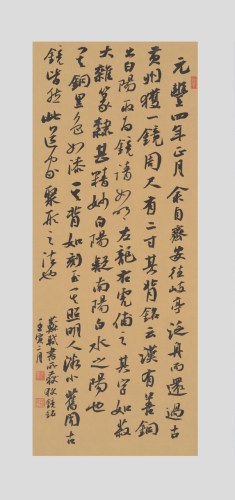 元豐四年正月余自齊安往岐亭泛舟而還過古
黃州獲一鏡周尺有二寸其背銘云漢有善銅
出白陽取為鏡清如明左龍右虎俌之其字如菽
大雜篆隸甚精妙白陽疑南陽白水之陽也
其銅黑色如漆其背如刻玉其照明人微小舊聞古
鏡皆然此道家聚形之法也
蘇軾書所获鏡銘
壬寅二月